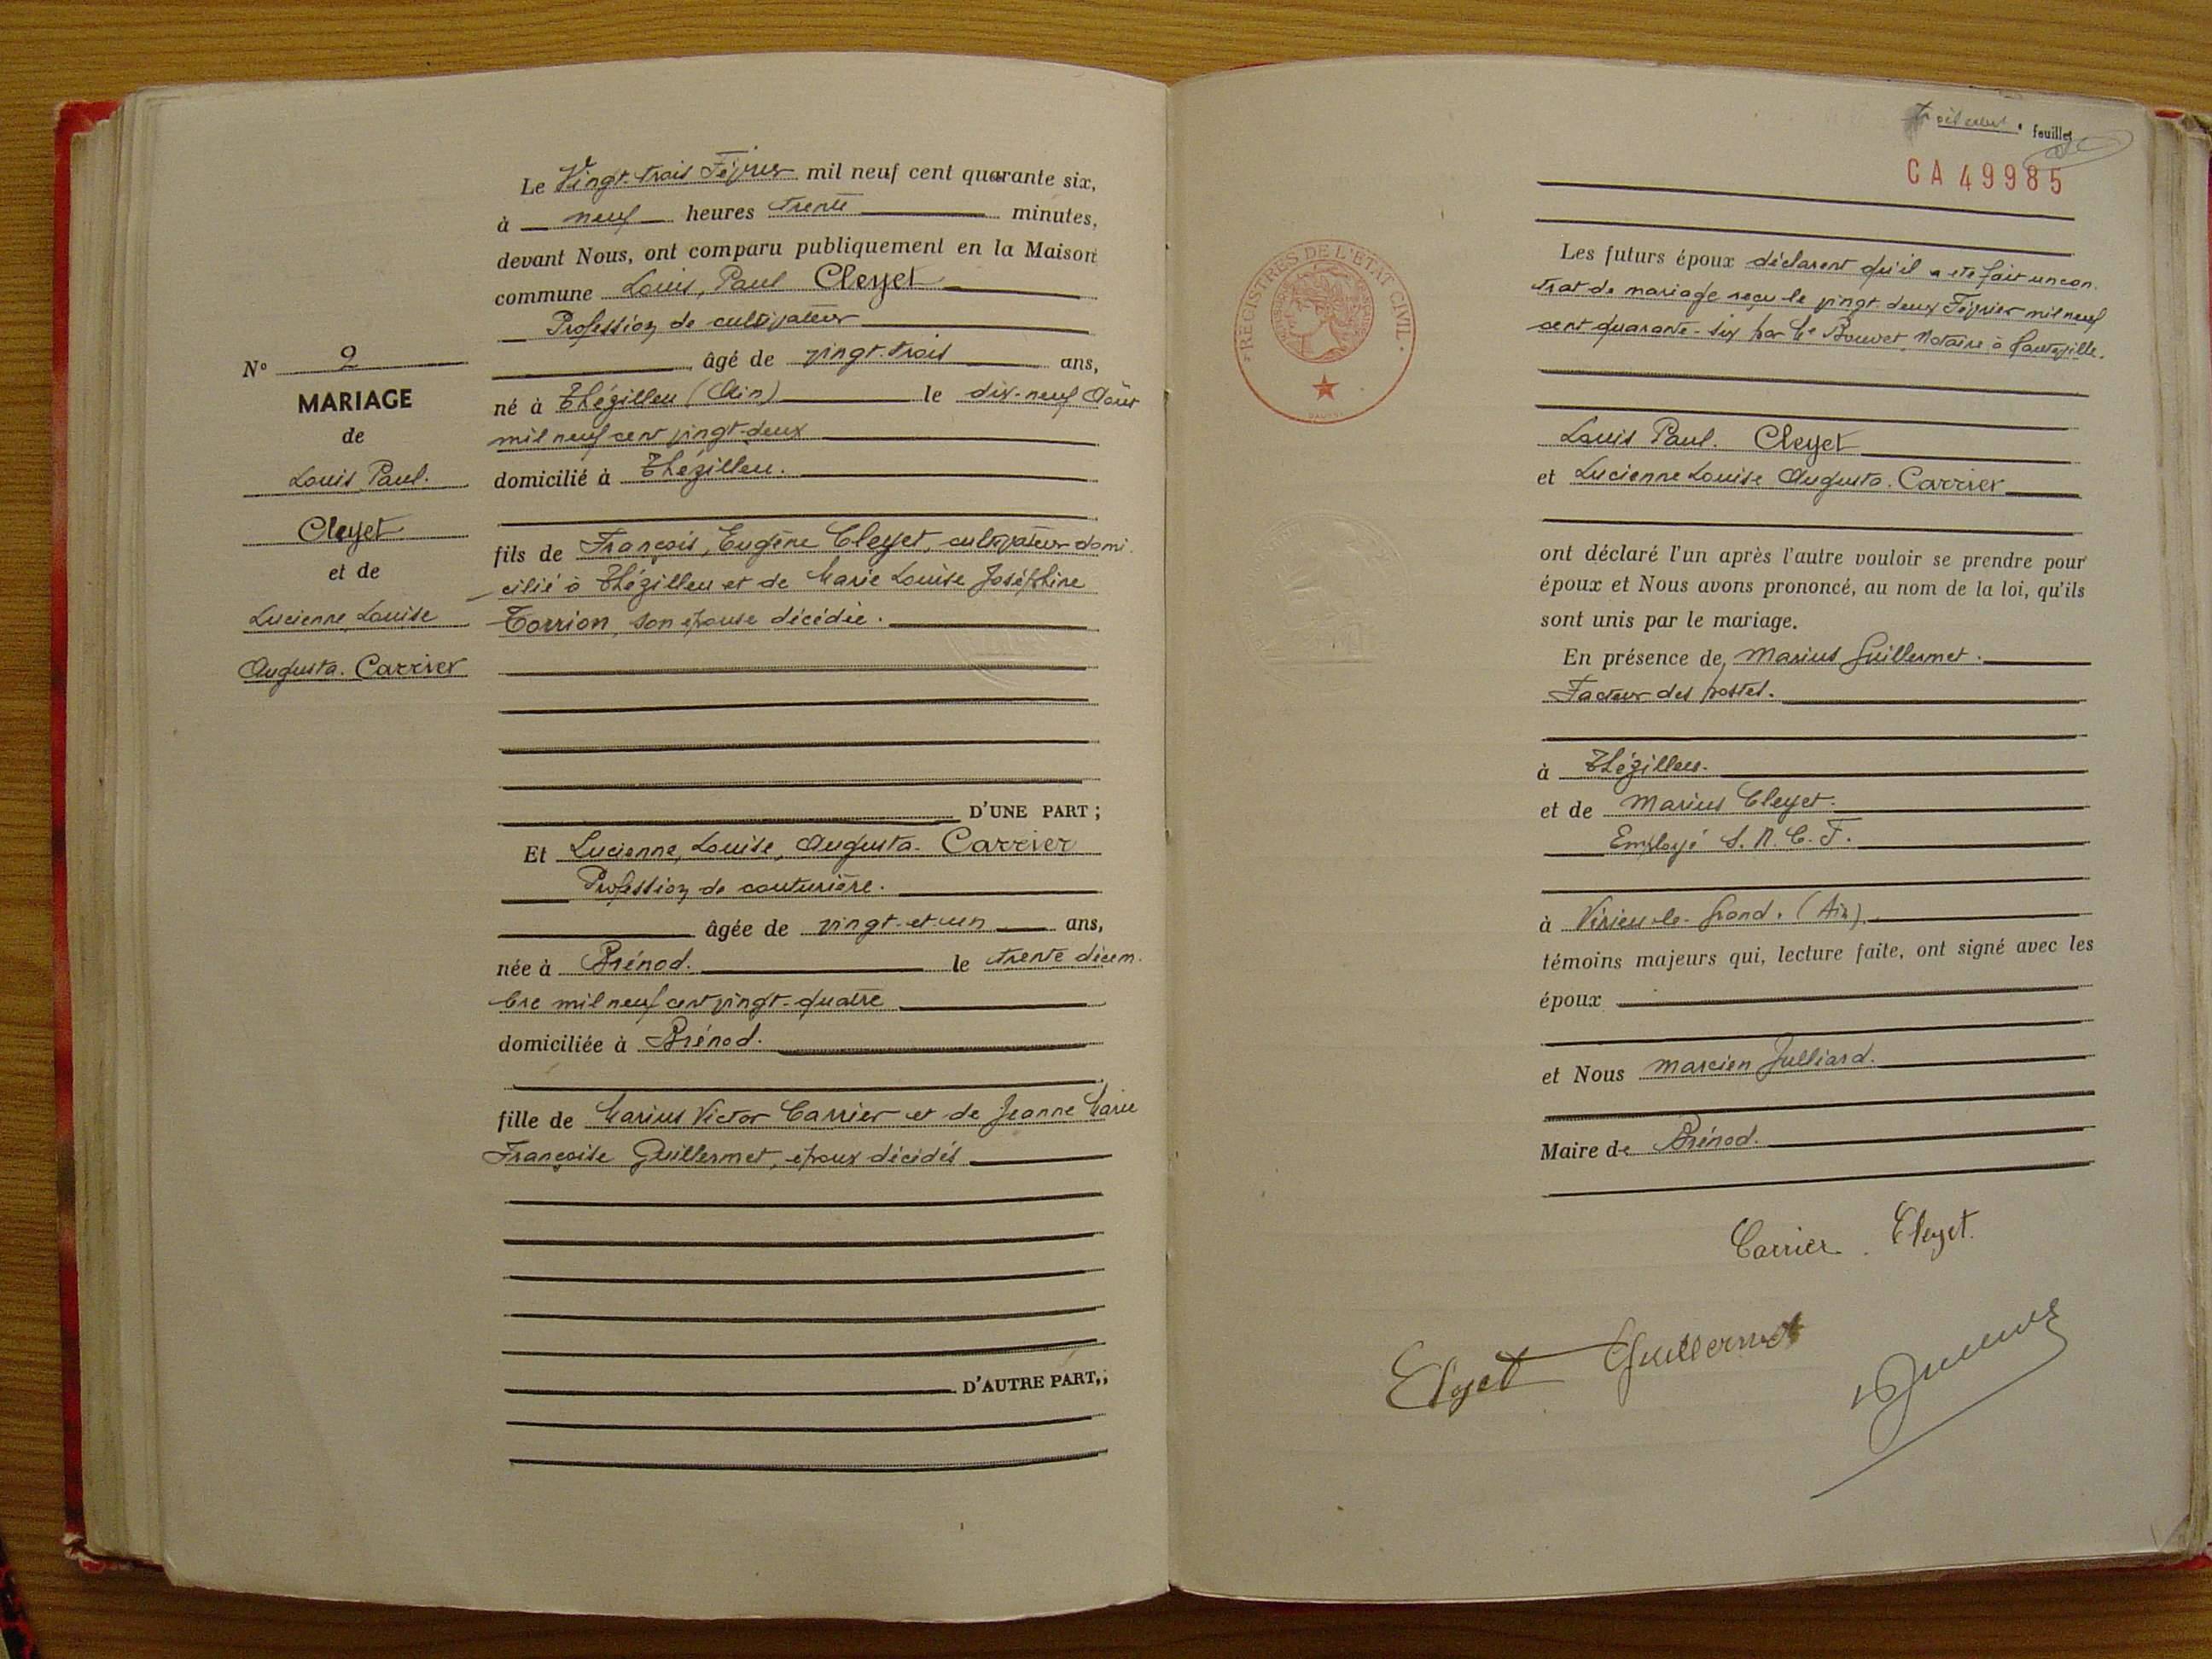 Le Vingt-trois Février mil neuf cent quarante six,
à neuf heures trente minutes,
devant Nous, ont comparu publiquement en la Maison
commune Louis, Paul Cleyet
Profession de cultivateur
âgé de vingt-trois ans,
né à Thézillieu (Ain) le dix-neuf Août
mil neuf cent vingt-deux
domicilié à Thézillieu.
fils de François, Eugène Cleyet, cultivateur domi-
cilié à Thézillieu et de Marie Louise Joséphine
Torrion, son épouse décédée.
D'UNE PART ;
Et Lucienne, Louise, Augusta. Carrier
Profession de couturière.
âgée de vingt-et-un ans,
née à Brénod. le trente décem-
bre mil neuf cent vingt-quatre
domiciliée à Brénod.
fille de Marius Victor Carrier et de Jeanne Marie
Françoise Guillermet, époux décédés
D'AUTRE PART,;
N° 2
MARIAGE
de
Louis Paul.
Cleyet
et de
Lucienne, Louise
Augusta. Carrier
feuillet
CA 49985
REGISTRES DE L'ETAT CIVIL
Les futurs époux déclarent qu'il a été fait un con-
trat de mariage reçu le vingt-deux Février mil neuf
cent quarante-six par Me Bouvet, Notaire à Hauteville.
Louis Paul. Cleyet
et Lucienne Louise Augusta. Carrier
ont déclaré l'un après l'autre vouloir se prendre pour
époux et Nous avons prononcé, au nom de la loi, qu'ils
sont unis par le mariage.
En présence de Marius Guillermet.
Facteur des postes.
à Thézillieu.
et de Marius Cleyet.
Employé S.N.C.F.
à Virieu-le-Grand. (Ain)
témoins majeurs qui, lecture faite, ont signé avec les
époux
et Nous Marcien Julliard.
Maire de Brénod.
Carrier. Cleyet.
Cleyet Guillermet